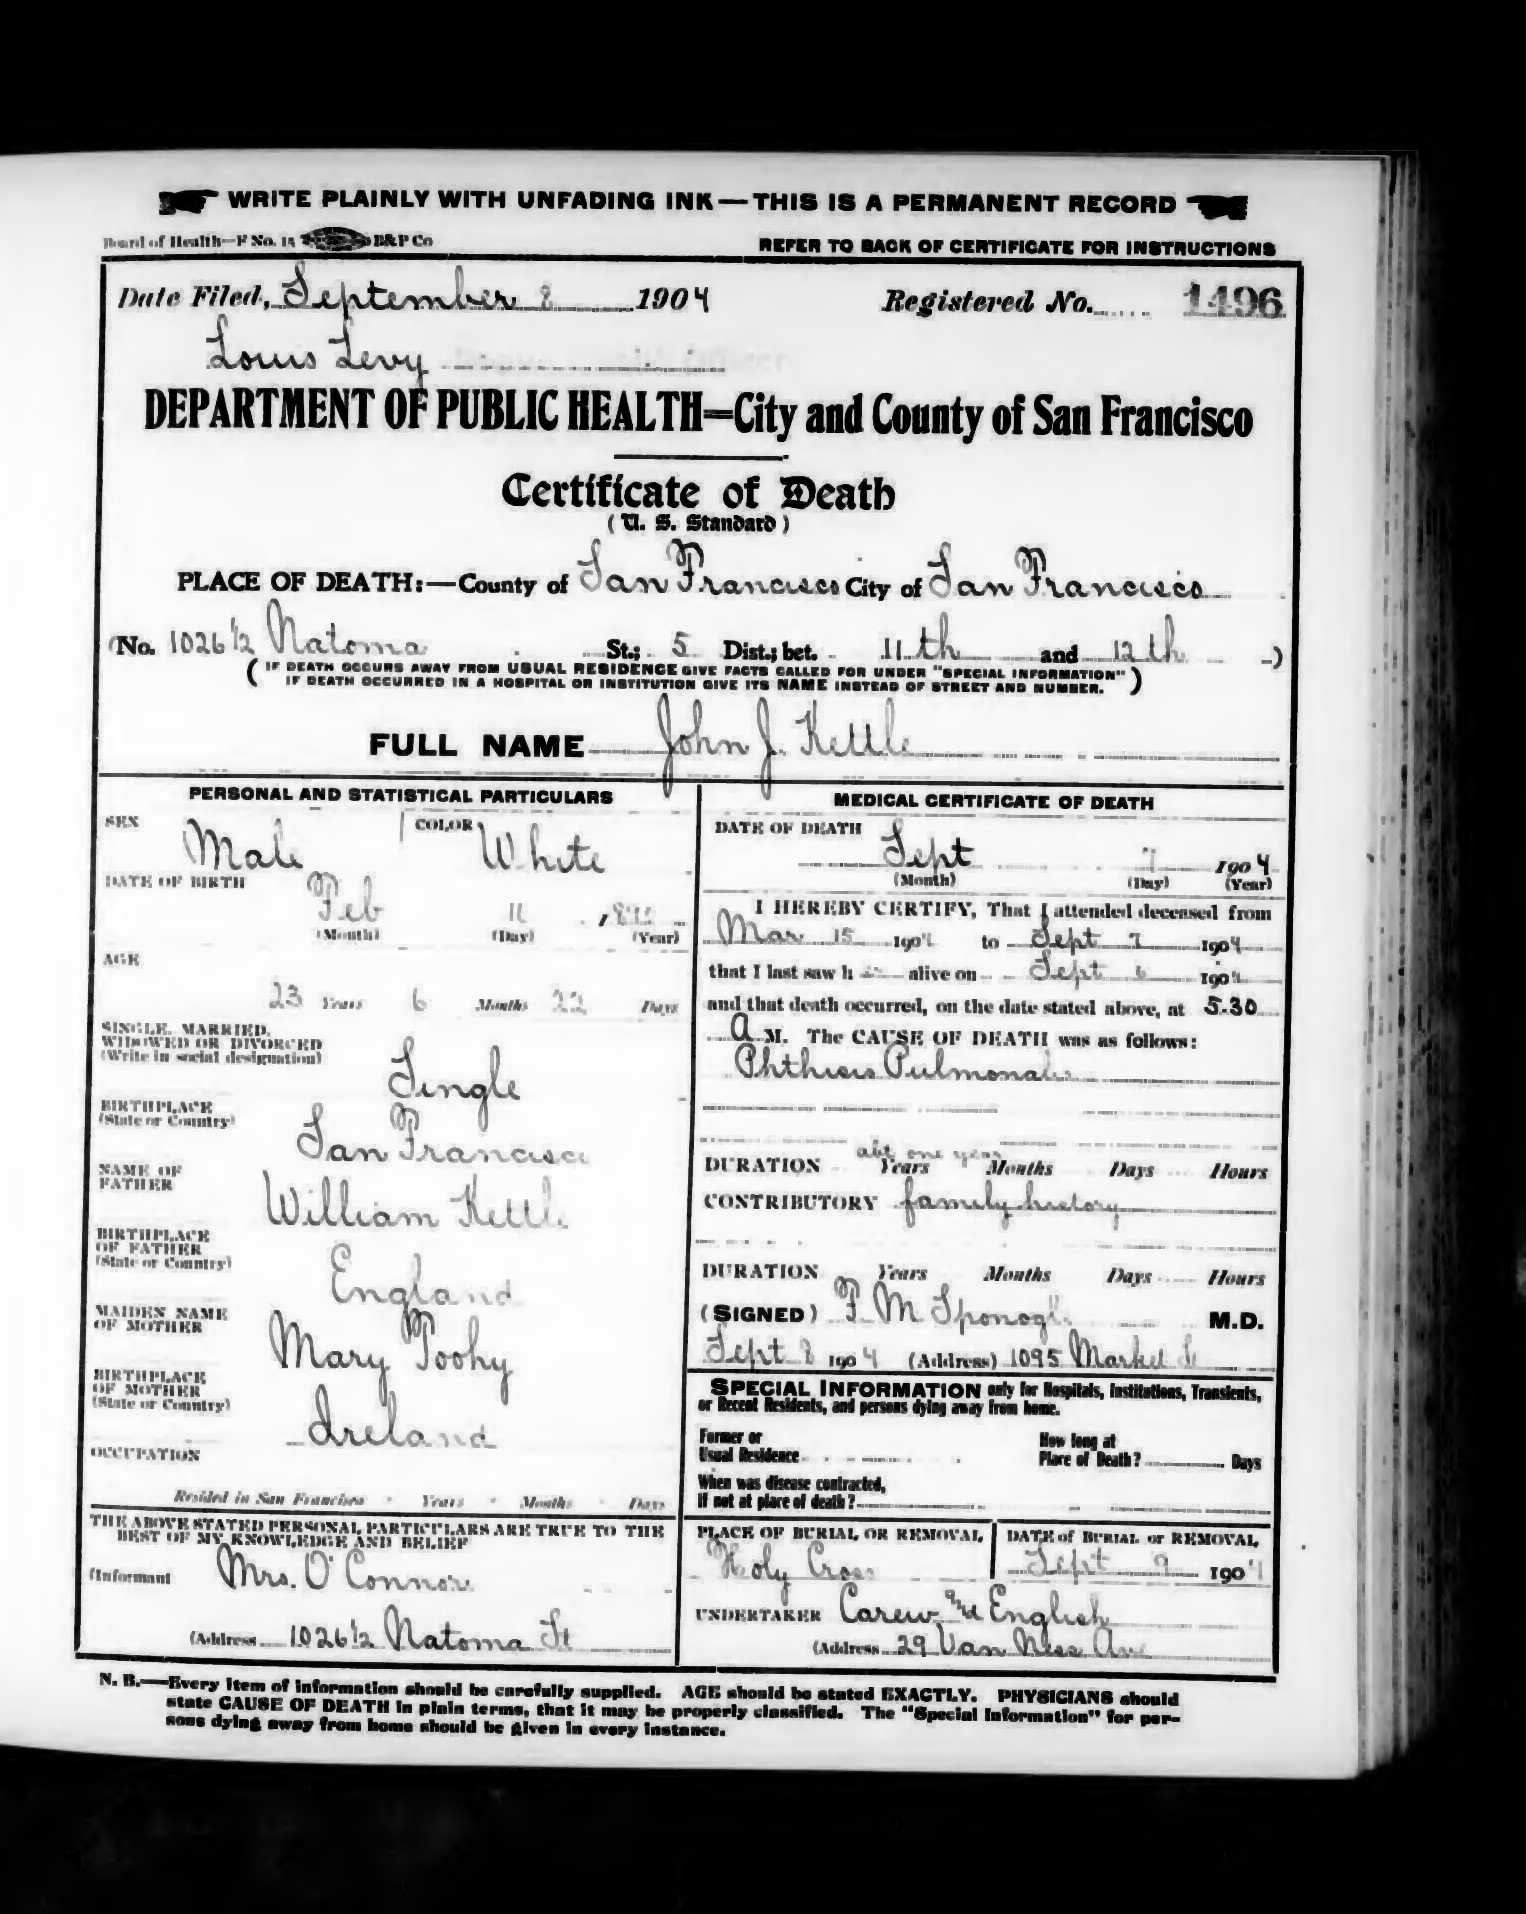 WRITE PLAINLY WITH UNFADING INK—THIS IS A PERMANENT RECORD
Board of Health—F No. 15 B&P Co
REFER TO BACK OF CERTIFICATE FOR INSTRUCTIONS
Date Filed, September 8 1904 Registered No. 1496
Louis Levy
DEPARTMENT OF PUBLIC HEALTH=City and County of San Francisco
Certificate of Death
(U. S. Standard)
PLACE OF DEATH:—County of San Francisco City of San Francisco
(No. 1026 1/2 Natoma St.; 5 Dist.; bet. 11th and 12th )
(IF DEATH OCCURS AWAY FROM USUAL RESIDENCE GIVE FACTS CALLED FOR UNDER "SPECIAL INFORMATION"
IF DEATH OCCURRED IN A HOSPITAL OR INSTITUTION GIVE ITS NAME INSTEAD OF STREET AND NUMBER.)
FULL NAME John J. Kettle
PERSONAL AND STATISTICAL PARTICULARS
SEX Male COLOR White
DATE OF BIRTH Feb
(Month) (Day) (Year)
AGE
23 Years 6 Months 22 Days
SINGLE, MARRIED,
WIDOWED OR DIVORCED
(Write in social designation)
Single
BIRTHPLACE
(State or Country)
San Francisco
NAME OF
FATHER
William Kettle
BIRTHPLACE
OF FATHER
(State or Country)
England
MAIDEN NAME
OF MOTHER
Mary Toohy
BIRTHPLACE
OF MOTHER
(State or Country)
Ireland
OCCUPATION
Resided in San Francisco Years Months Days
THE ABOVE STATED PERSONAL PARTICULARS ARE TRUE TO THE
BEST OF MY KNOWLEDGE AND BELIEF
(Informant Mrs. O'Connor
(Address 1026 1/2 Natoma St
MEDICAL CERTIFICATE OF DEATH
DATE OF DEATH
Sept 7 1904
(Month) (Day) (Year)
I HEREBY CERTIFY, That I attended deceased from
Mar 15 1904 to Sept 7 1904
that I last saw h alive on Sept 6 1904
and that death occurred, on the date stated above, at 5.30
A M. The CAUSE OF DEATH was as follows:
Phthisis Pulmonalis
abt one year
DURATION Years Months Days Hours
CONTRIBUTORY family history
DURATION Years Months Days Hours
(SIGNED) F. M Sponogle M.D.
Sept 8 1904 (Address) 1095 Market St
SPECIAL INFORMATION only for Hospitals, Institutions, Transients,
or Recent Residents, and persons dying away from home.
Former or
Usual Residence
How long at
Place of Death? Days
When was disease contracted,
If not at place of death?
PLACE OF BURIAL OR REMOVAL
Holy Cross
DATE of BURIAL or REMOVAL
Sept 9 1904
UNDERTAKER Carew and English
(Address 29 Van Ness Ave
N. B.—Every item of information should be carefully supplied. AGE should be stated EXACTLY. PHYSICIANS should
state CAUSE OF DEATH in plain terms, that it may be properly classified. The "Special Information" for per-
sons dying away from home should be given in every instance.